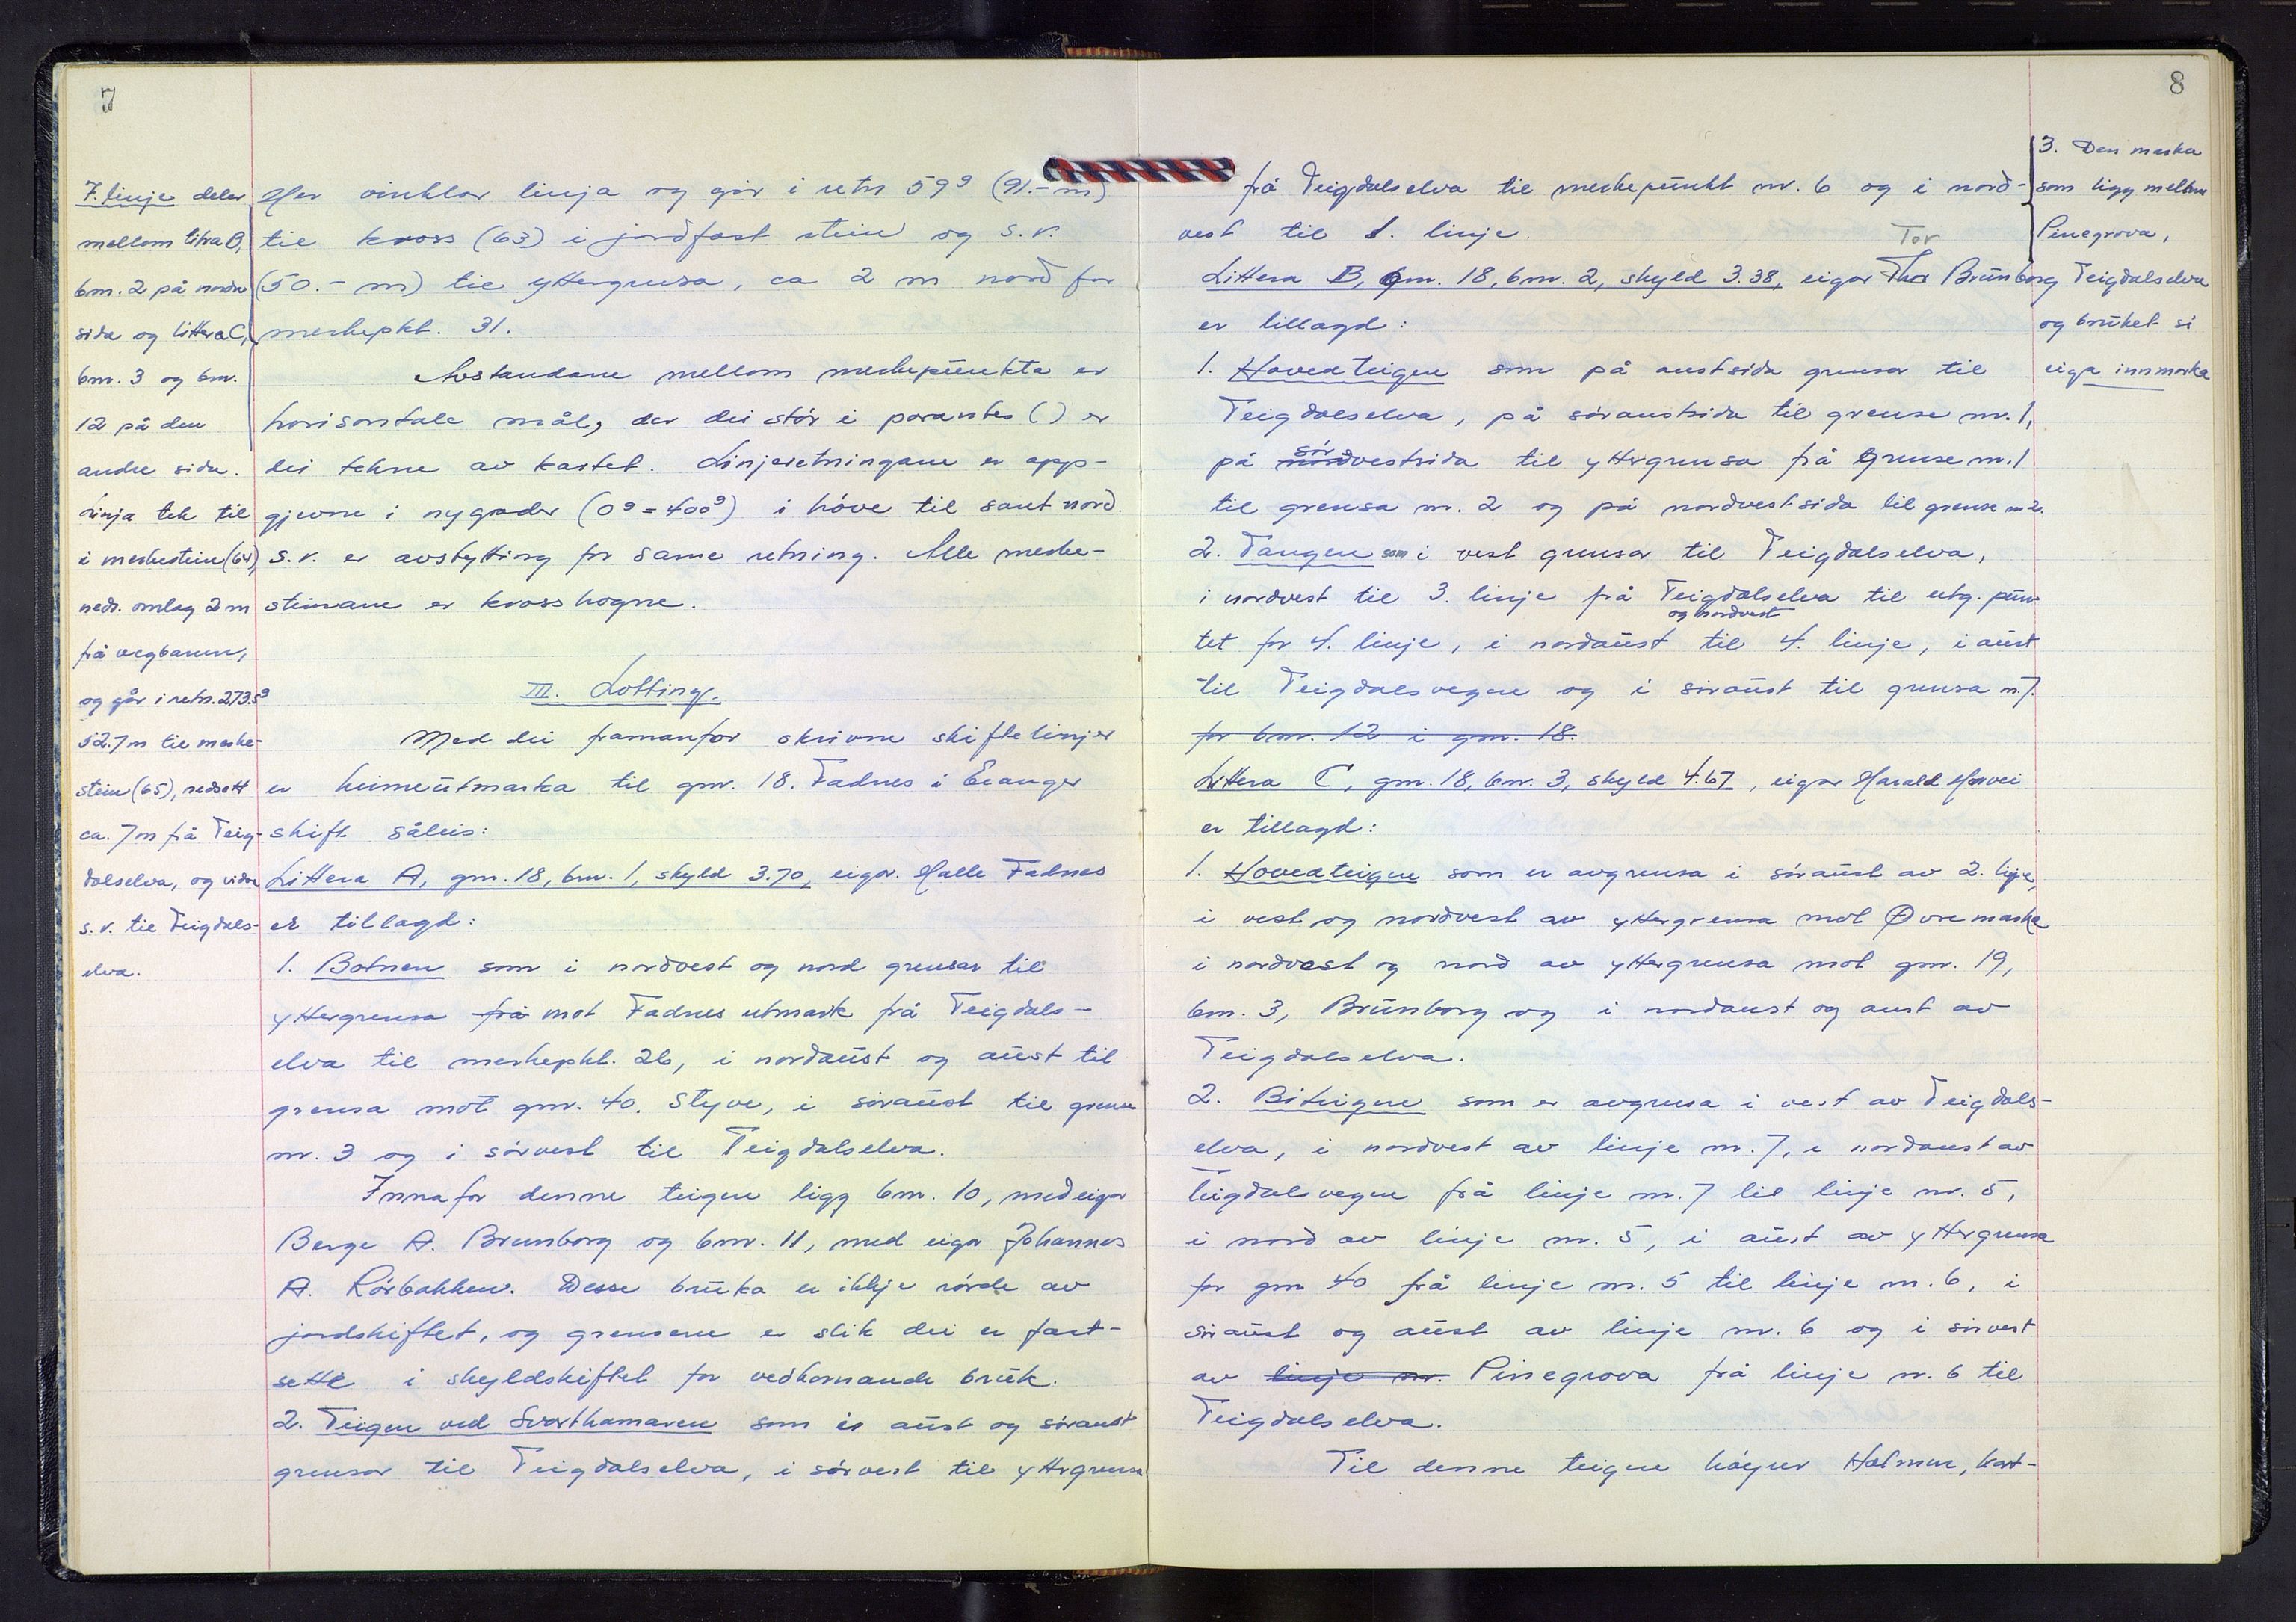 7
7. linje deler
mellom litra B,
bnr. 2 på nordre
side og littera C,
bnr. 3 og bnr.
12 på den
andre sida.
Linja tek til
i merkestein (64),
neds. omlag 2 m
frå vegbanen,
og går i retn. 273.5ᵍ
52.7 m til merke-
stein (65), nedsett
ca. 7 m frå Teig-
dalselva, og vidare
s.v. til Teigdals-
elva.
Her vinklar linja og går i retn 59ᵍ (91.- m)
til kross (63) i jordfast stein og s.v.
(50.- m) til yttergrensa, ca 2 m nord for
merkepkt. 31.
Avstandane mellom merkepunkta er
horisontale mål, der dei stór i parantes () er
dei tekne av kartet. Linjeretningane er opp-
gjevne i nygrader (0ᵍ = 400ᵍ) i hóve til sant nord.
S.v. er avstytting for same retning. Alle merke-
steinane er krosshogne.
III. Lotting.
Med dei framanfor skrivne skiftelinjer
er heimeutmarka til gnr. 18. Fadnes i Evanger
skift såleis:
Littera A, gnr. 18, bnr. 1, skyld 3.70, eigar. Halle Fadnes
er tillagd:
1. Botnen som i nordvest og nord grensar til
yttergrensa frå mot Fadnes utmark frå Teigdals-
elva til merkepkt. 26, i nordaust og aust til
grensa mot gnr. 40. Styve, i søraust til grense
nr. 3 og i sørvest til Teigdalselva.
Innafor denne teigen ligg bnr. 10, med eigar
Berge A. Brunborg og bnr. 11, med eigar Johannes
A. Rørbakken. Desse bruka er ikkje rørde av
jordskiftet, og grensene er slik dei er fast-
sette i skyldskiftet for vedkomande bruk.
2. Teigen ved Svarthamaren som i aust og søraust
grensar til Teigdalselva, i sørvest til yttergrensa
8
frå Teigdalselva til merkepunkt nr. 6 og i nord-
vest til 1. linje.
Tor
Littera B, gnr. 18, bnr. 2, skyld 3.38, eigar Thor Brunborg
er tillagd:
1. Hovedteigen som på austsida grensar til
Teigdalselva, på søraustsida til grense nr. 1,
sør
på nordvestsida til yttergrensa frå grense nr. 1
til grensa nr. 2 og på nordvestsida til grense nr 2.
2. Tangen som i vest grensar til Teigdalselva,
i nordvest til 3. linje frå Teigdalselva til utg. punk-
og nordvest
tet for 4. linje, i nordaust til 4. linje, i aust
til Teigdalsvegen og i søraust til grensa nr. 7.
for bnr. 12 i gnr. 18.
Littera C, gnr. 18, bnr. 3, skyld 4.67, eigar Harald Horvei
er tillagd:
1. Hovedteigen som er avgrensa i søraust av 2. linje,
i vest og nordvest av yttergrensa mot Øvre marka
i nordvest og nord av yttergrensa mot gnr. 19,
bnr. 3, Brunborg og i nordaust og aust av
Teigdalselva.
2. Biteigen som er avgrensa i vest av Teigdals-
elva, i nordvest av linje nr. 7, i nordaust av
Teigdalsvegen frå linje nr. 7 til linje nr. 5,
i nord av linje nr. 5, i aust av yttergrensa
for gnr 40 frå linje nr. 5 til linje nr. 6, i
søraust og aust av linje nr. 6 og i sørvest
av linje nr. Pinegrova frå linje nr. 6 til
Teigdalselva.
Til denne teigen høyrer Holmen, kart-
3. Den marka
som ligg mellom
Pinegrova,
Teigdalselva
og bruket si
eiga innmarka